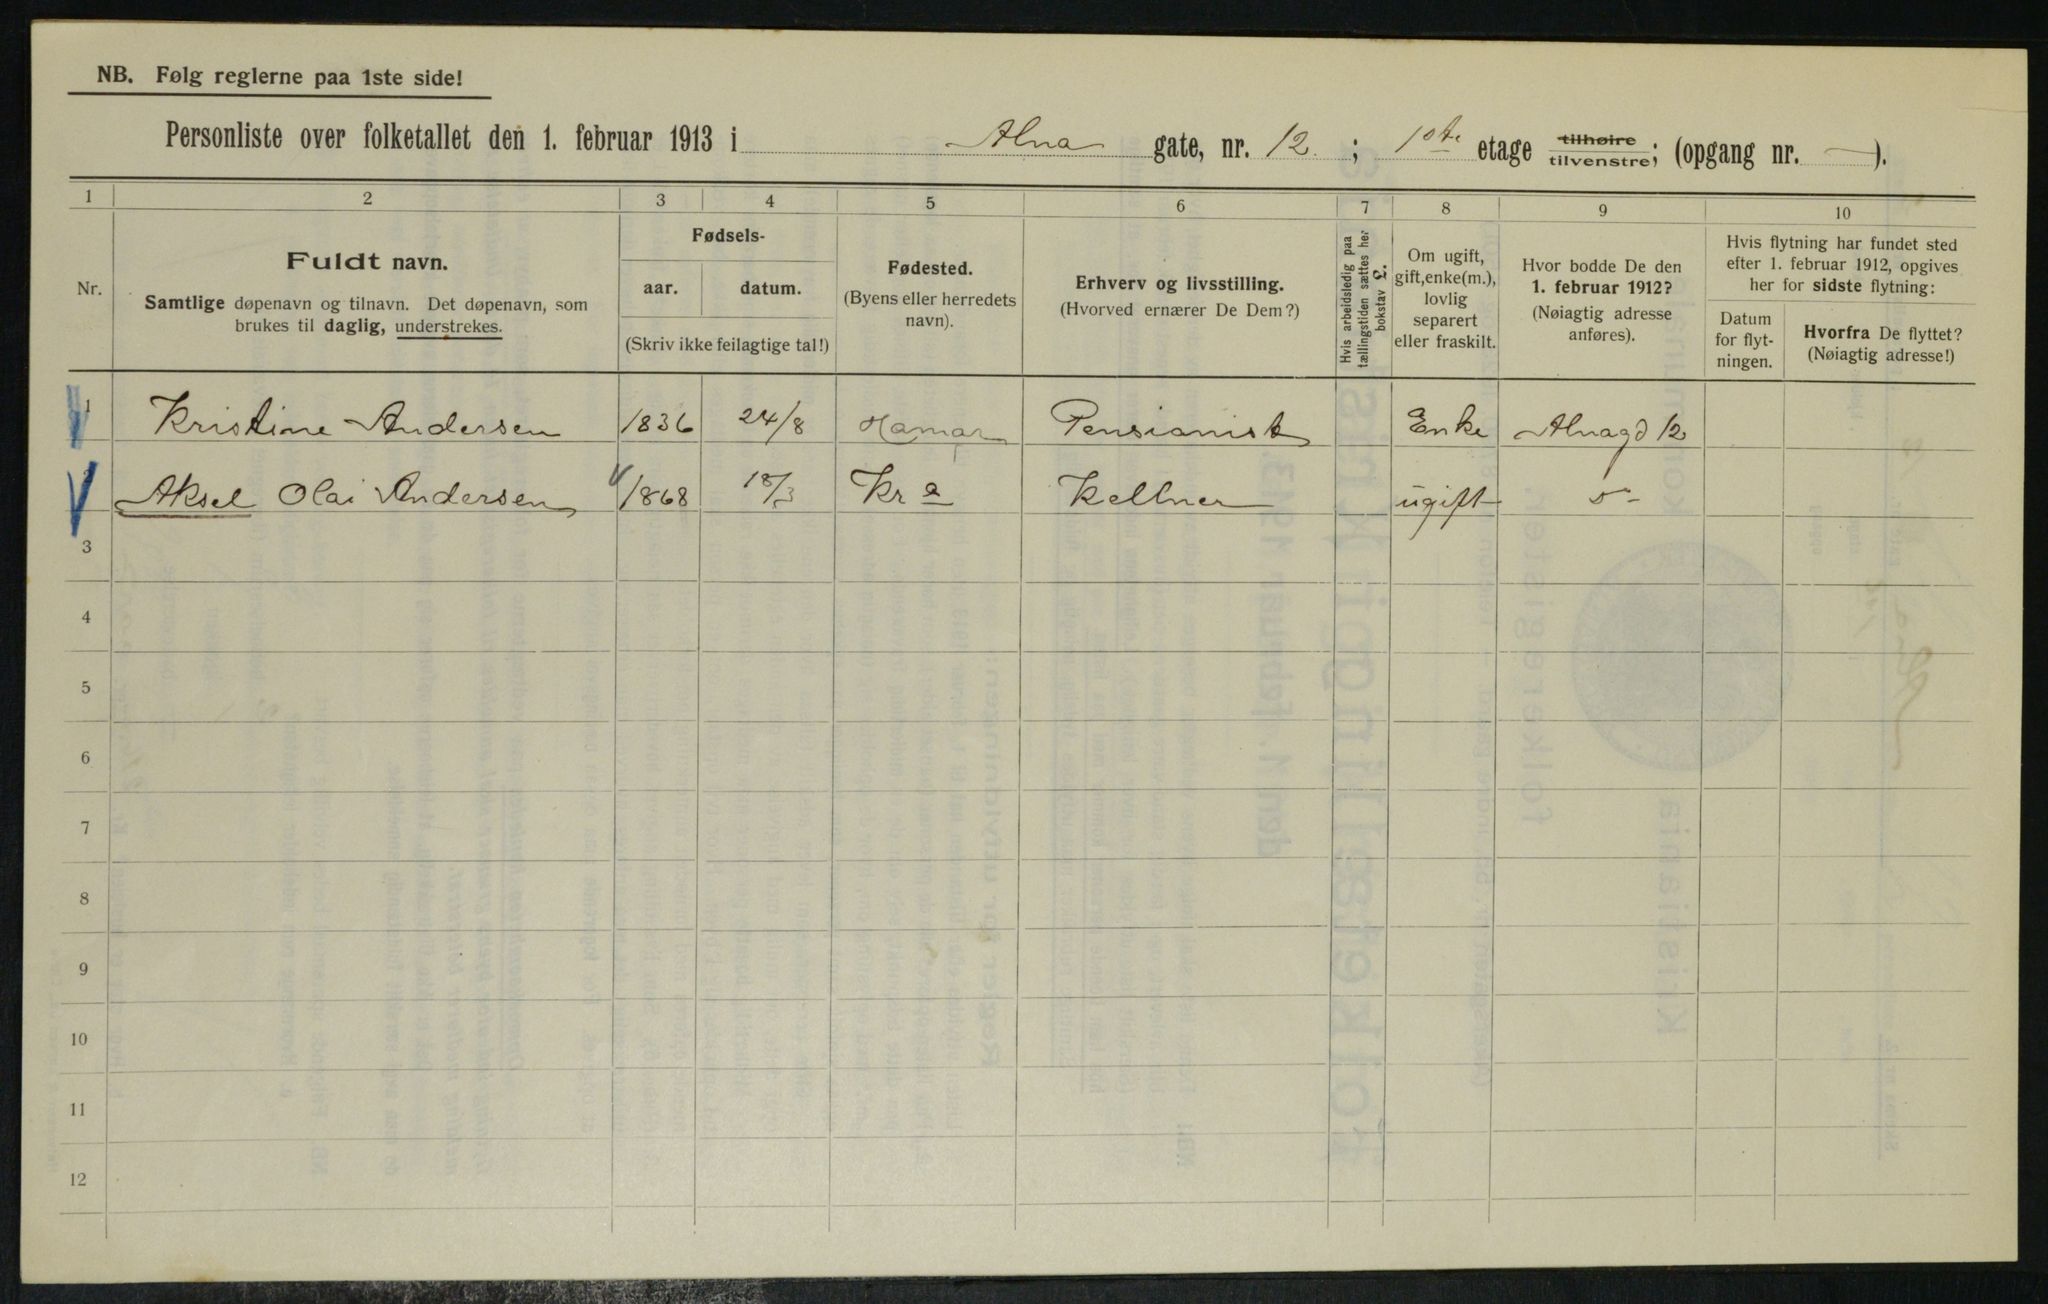 NB. Følg reglerne paa 1ste side!
Personliste over folketallet den 1. februar 1913 i Alna gate, nr. 12. ; 1ste etage tilhøire tilvenstre; (opgang nr. — ).
1 2 3 4 5 6 7 8 9 10
Nr.
Fuldt navn.
Samtlige døpenavn og tilnavn. Det døpenavn, som
brukes til daglig, understrekes.
Fødsels-
aar. datum.
(Skriv ikke feilagtige tal!)
Fødested.
(Byens eller herredets
navn).
Erhverv og livsstilling.
(Hvorved ernærer De Dem?)
Hvis arbeidsledig paa
tællingstiden sættes her
bokstav L.
Om ugift,
gift, enke(m.),
lovlig
separert
eller fraskilt.
Hvor bodde De den
1. februar 1912?
(Nøiagtig adresse
anføres).
Hvis flytning har fundet sted
efter 1. februar 1912, opgives
her for sidste flytning:
Datum
for flyt-
ningen.
Hvorfra De flyttet?
(Nøiagtig adresse!)
1 Kristine Andersen 1836 24/8 Hamar Pensianist Enke Alnagd 12
2 Aksel Olai Andersen 1868 18/3 Kr a Kellner ugift
3
4
5
6
7
8
9
10
11
12